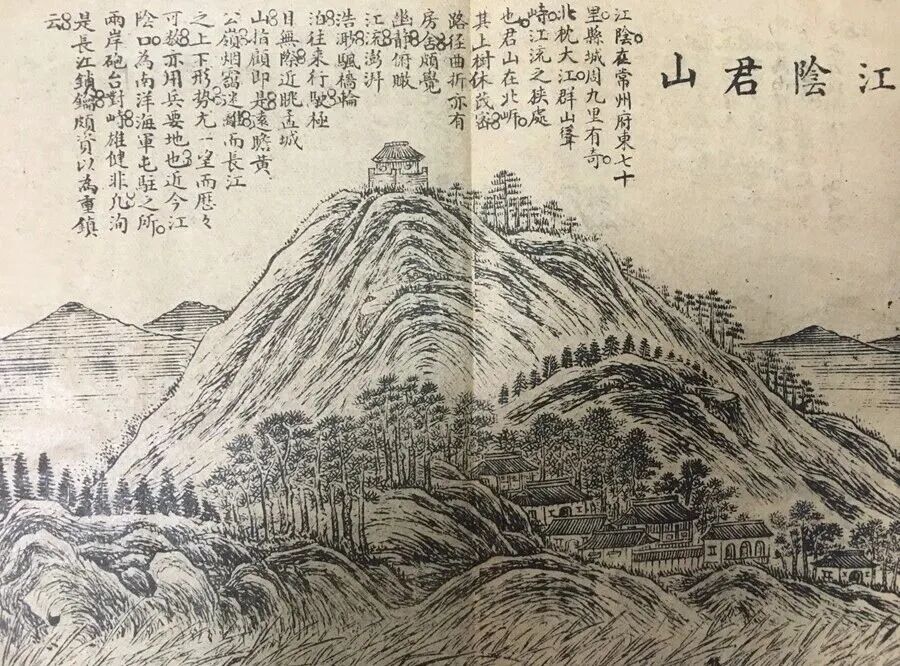 江陰君山
江陰在常州府東七十
里縣城周九里有奇
北枕大江群山聳
峙江流之狹處
也君山在北
其上樹休茂密
路径曲折亦有
房舍頗覺
幽静俯瞰
江流澎湃
浩渺颿檣輪
泊往来行駛極
目無際近眺孟城
山指顧即是遠瞻黄
公嶺烟靄迷離而長江
之上下形勢尤一望而歷々
可数亦用兵要地也近今江
陰口為南洋海軍屯駐之所
兩岸砲台對峙雄健非凡洵
是長江鎖鑰頗資以為重鎮
云